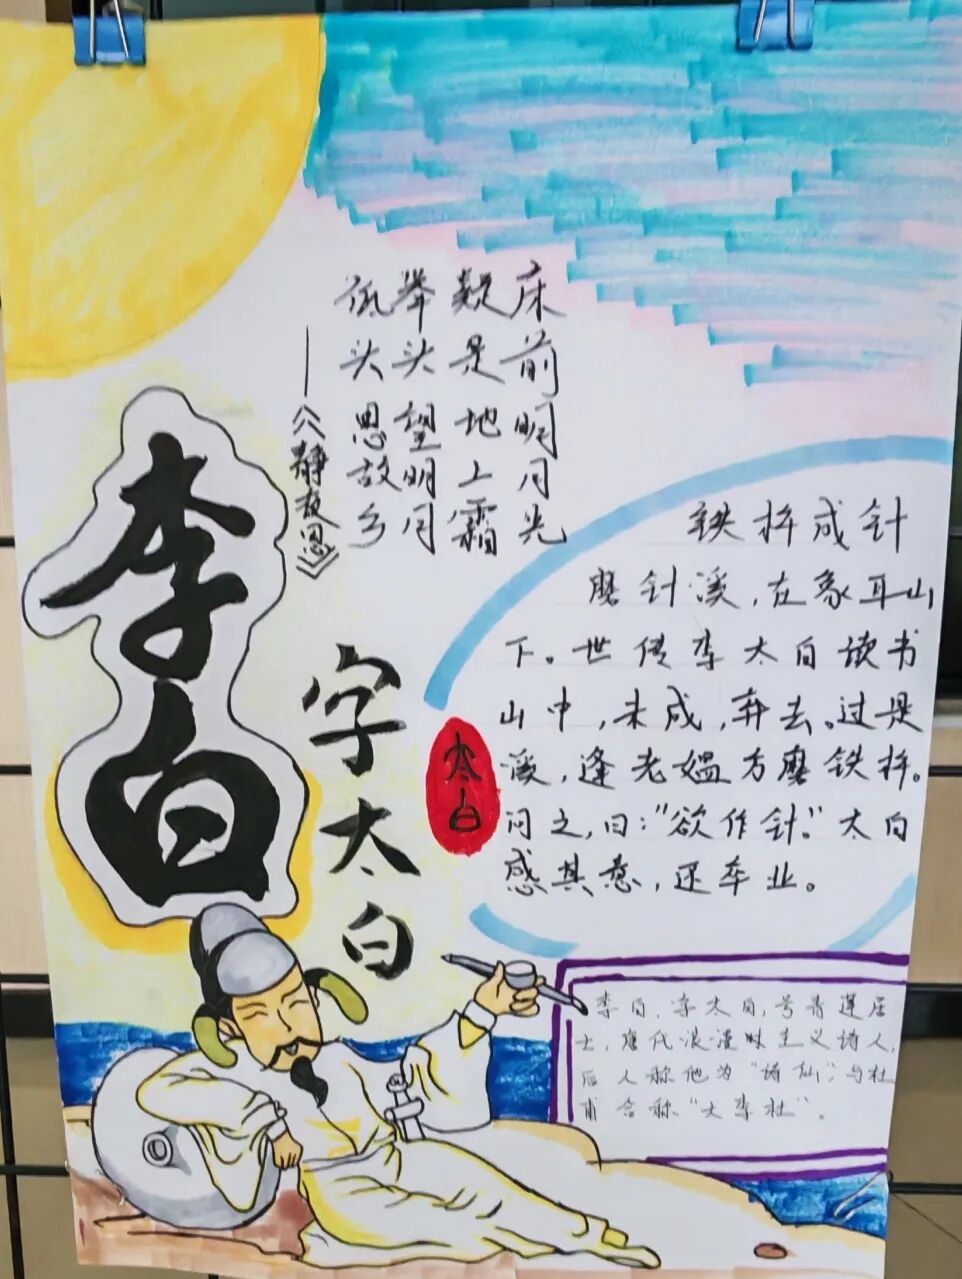 李白
字太白
床前明月光
疑是地上霜
举头望明月
低头思故乡
——《静夜思》
太白
铁杵成针
磨针溪，在象耳山
下。世传李太白读书
山中，未成，弃去。过是
溪，逢老媪方磨铁杵。
问之，曰：“欲作针。”太白
感其意，还卒业。
李白，字太白，号青莲居
士，唐代浪漫主义诗人，
后人称他为“诗仙”，与杜
甫合称“大李杜”。